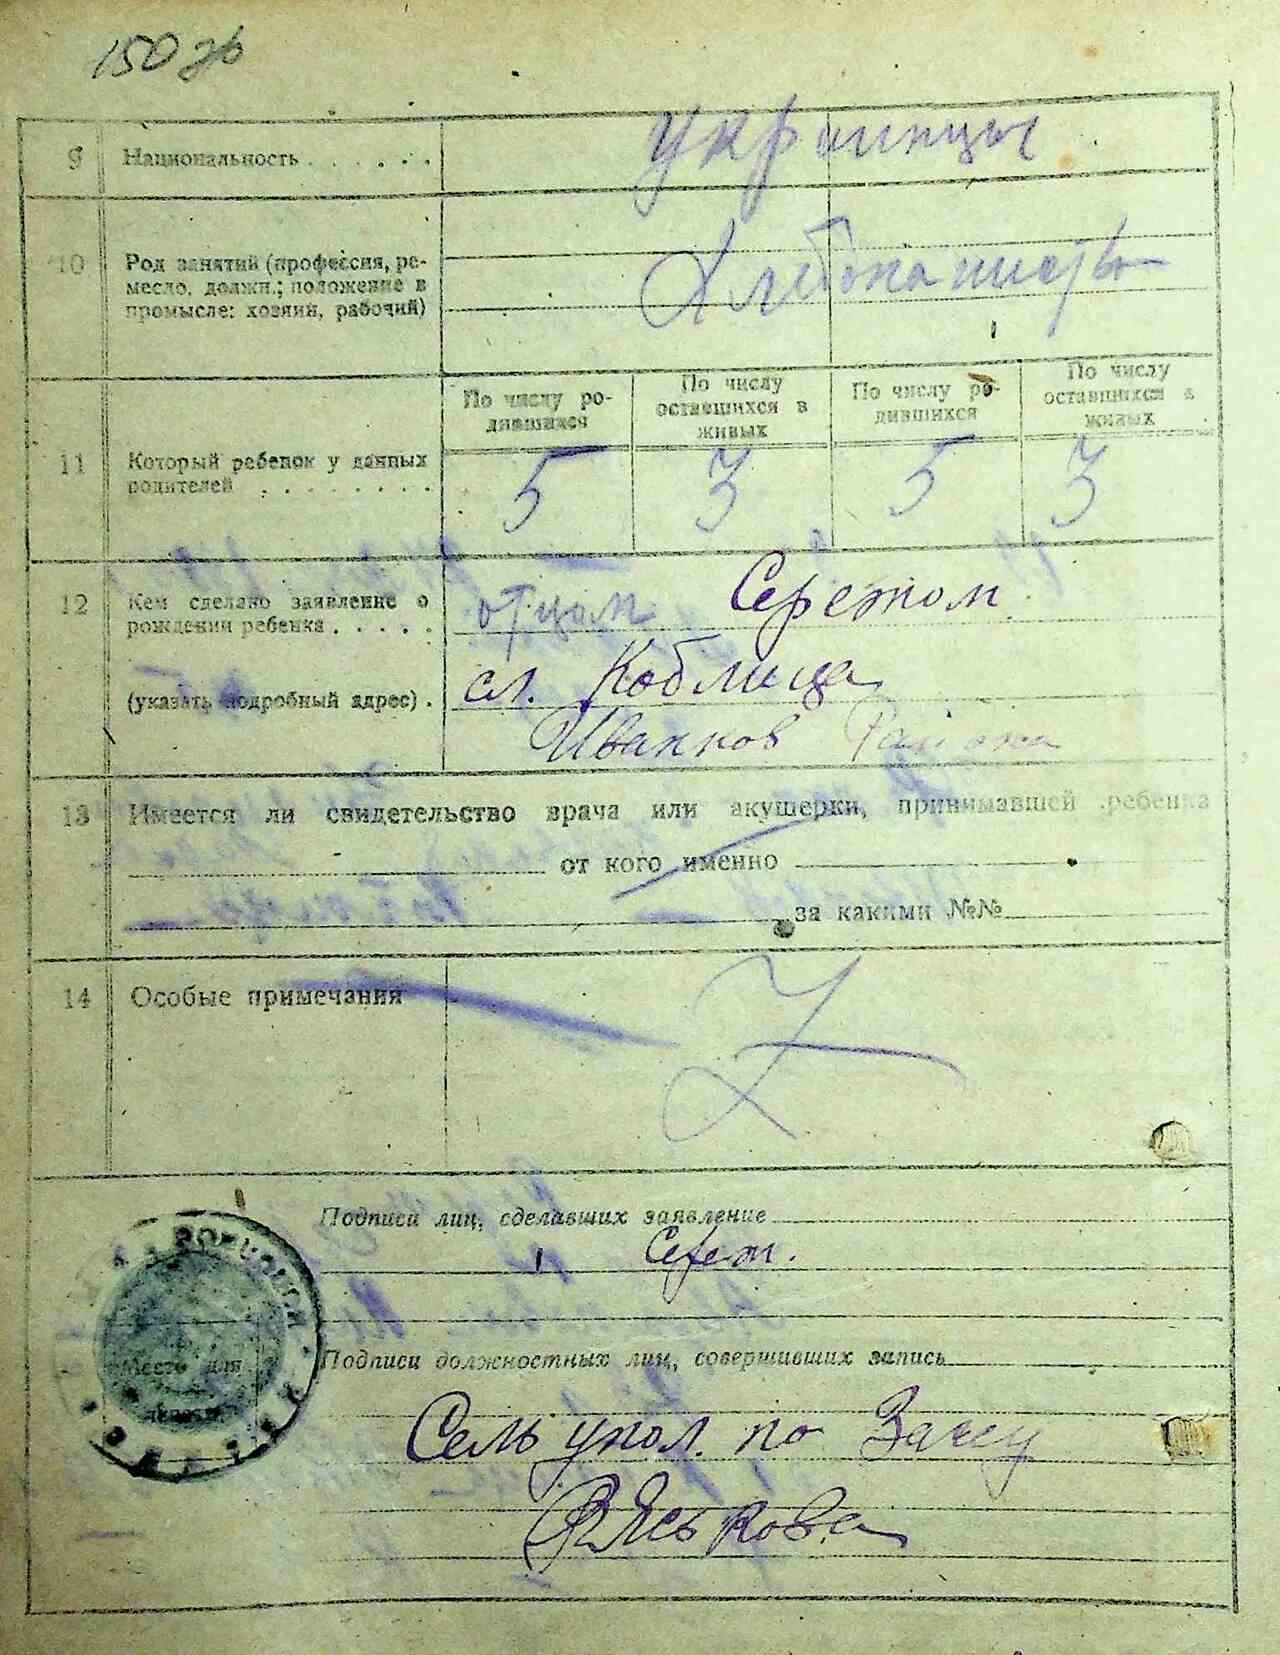 150 зв
9 Национальность . . . . . . украинцы
10 Род занятий (профессия, ре-
месло, должн.; положение в
промысле: хозяин, рабочий) Хлебопашество
По числу ро-
дившихся
По числу
оставшихся в
живых
По числу ро-
дившихся
По числу
оставшихся в
живых
11 Который ребенок у данных
родителей . . . . . . . . 5 3 5 3
12 Кем сделано заявление о
рождении ребенка . . . . . отцом
(указать подробный адрес) . сл. Коблица
Иванков Района
13 Имеется ли свидетельство врача или акушерки, принимавшей ребенка
от кого именно
за какими №№
14 Особые примечания
Подписи лиц, сделавших заявление
Место для
печати
Подписи должностных лиц, совершивших запись
Сель упол. по Загсу